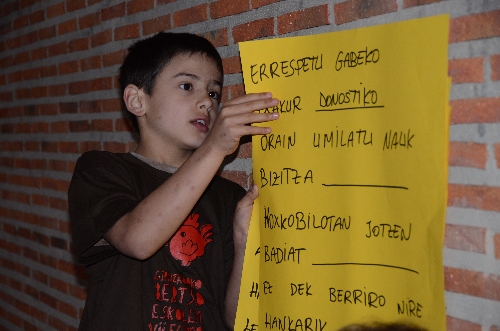 ERRESPETU GABEKO
TXAKUR DONOSTIKO
ORAIN UMILATU NAUK
BIZITZA
MOXKOBILOTAN JOTZEN
BADIAT
EZ DEK BERRIRO NIRE
HANKARIK
BERTSO
ESKOLEN